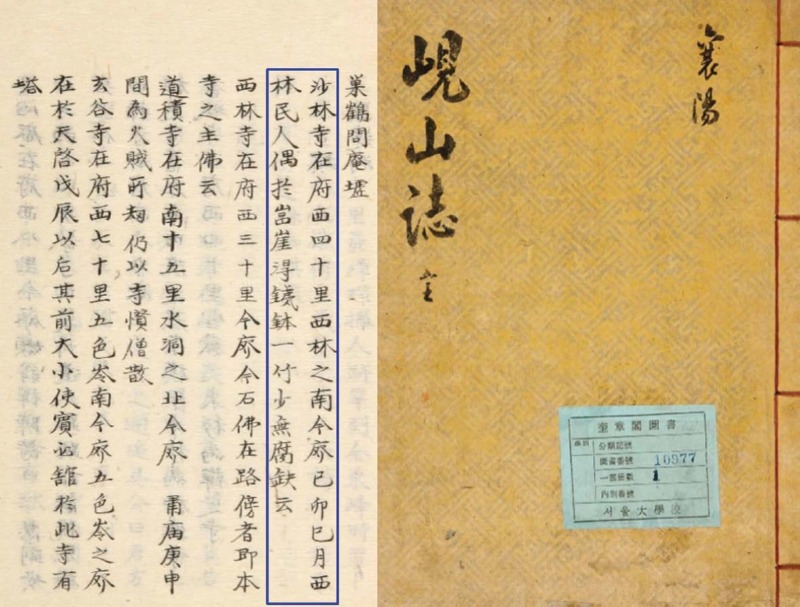 巢鶴問庵墟
沙林寺在府西四十里西林之南今廢己卯巳月西
林民人偶於崖淂鉢一竹少無腐鈌云
西林寺在府西三十里今廢今石佛在路傍者即本
寺之主佛云
道積寺在府南十五里水洞之北今廢 庚申
間為火賊所刼仍以寺憒僧散
玄谷寺在府西七十里五色岺南今廢五色岺之廢
在於天啓戊辰以后其前大小使賓必舘於此寺有
塔
襄陽
峴山誌 全
奎章閣圖書
分類記號
圖書番號 10977
一部冊數 1
內別番號
서울大學校